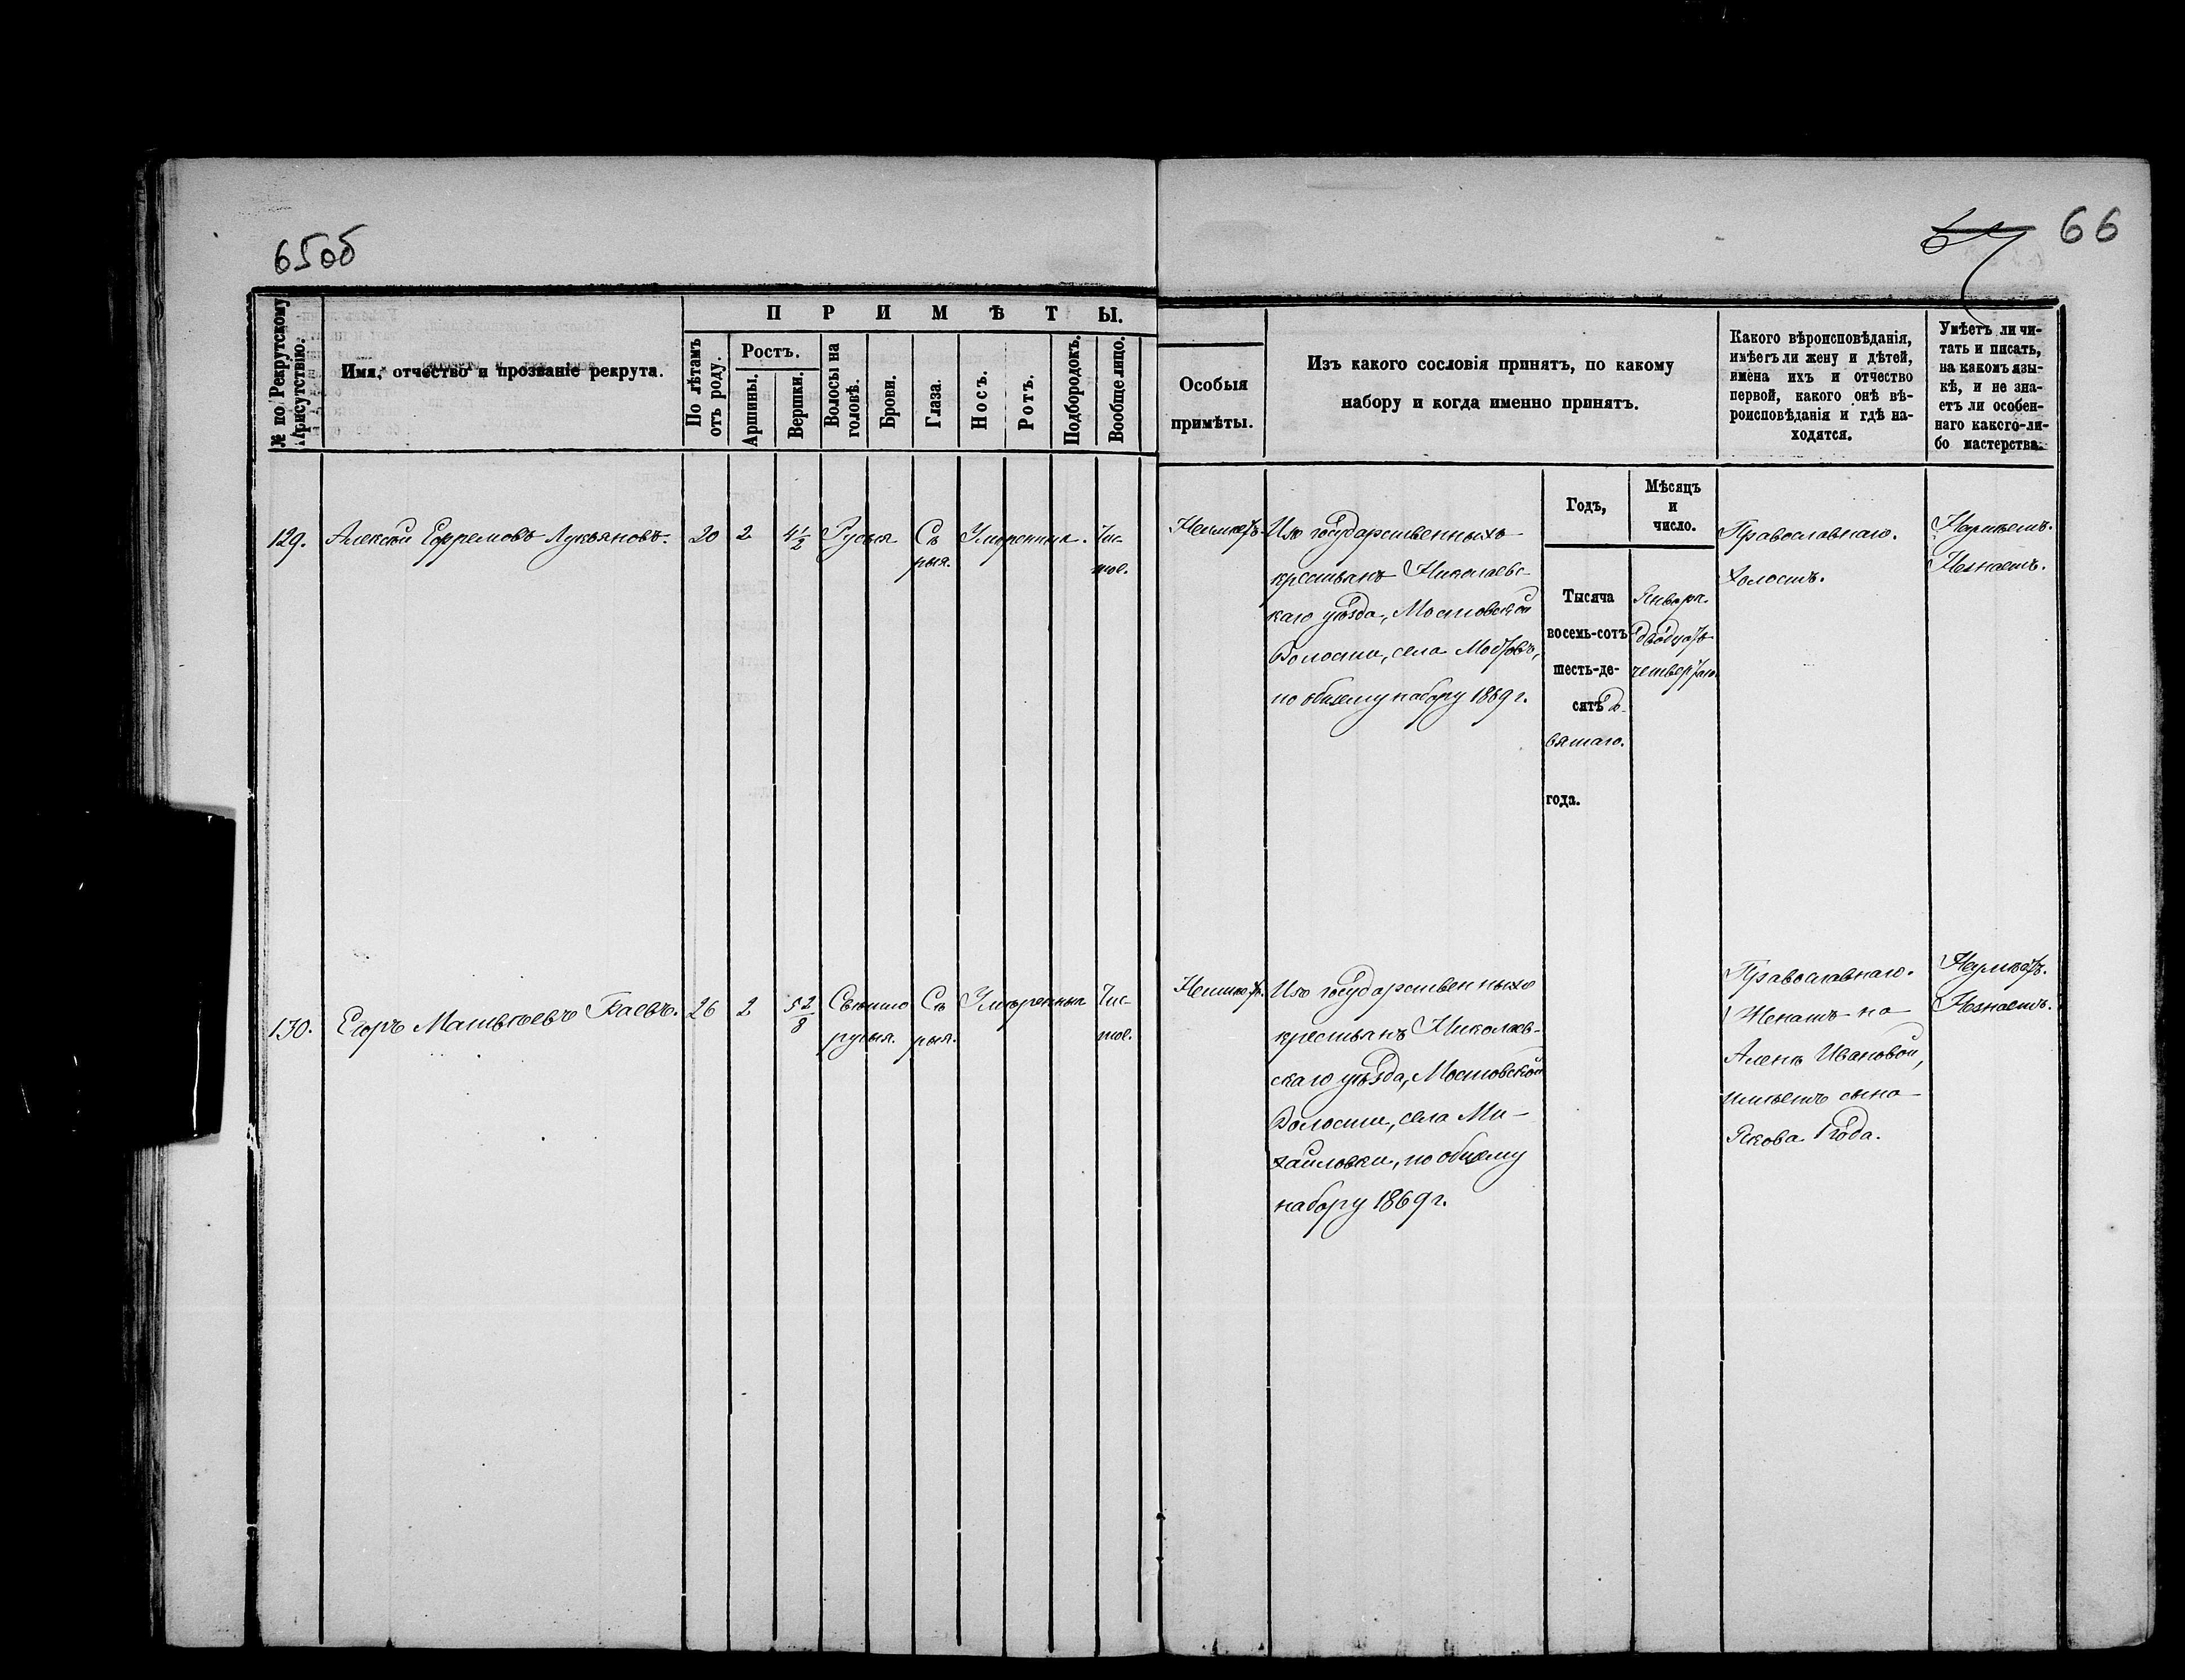 65об
66
№ по Рекрутскому Присутствію.
Имя, отчество и прозваніе рекрута.
ПРИМѢТЫ.
По лѣтамъ отъ роду.
Ростъ.
Аршины.
Вершки.
Волосы на головѣ.
Брови.
Глаза.
Носъ.
Ротъ.
Подбородокъ.
Вообще лицо.
Особыя
примѣты.
Изъ какого сословія принятъ, по какому
набору и когда именно принятъ.
Какого вѣроисповѣданія,
имѣетъ ли жену и дѣтей,
имена ихъ и отчество
первой, какого онѣ вѣ-
роисповѣданія и гдѣ на-
ходятся.
Умѣетъ ли чи-
тать и писать,
на какомъ язы-
кѣ, и не зна-
етъ ли особен-
наго какого-ли-
бо мастерства.
129. Алексѣй Ефремовъ Лукьяновъ. 20 2 4½ Русыя Сѣ
рыя. Умѣренныя. Чис-
тое.
Неимѣетъ.
Изъ государственныхъ
крестьянъ Николаевс-
каго уѣзда, Мостовской
Волости, села Мостовъ,
по общему набору 1869 г.
Годъ,
Тысяча
восемь-сотъ
шесть-де-
сятъ де-
вятаго.
года.
Мѣсяцъ
и
число.
Января
двадцать
четвертаго.
Православнаго.
Холостъ.
Неумѣетъ.
Незнаетъ.
130. Егоръ Матвѣевъ Баевъ. 26 2 5 2/8 Свѣтло
русыя. Сѣ
рыя. Умѣренныя Чис-
тое.
Неимѣетъ.
Изъ государственныхъ
крестьянъ Николаев-
скаго уѣзда, Мостовской
Волости, села Ми-
хайловки, по общему
набору 1869 г.
Православнаго.
Женатъ на
Аленѣ Ивановой,
имѣетъ сына
Якова 1 года.
Неумѣетъ.
Незнаетъ.